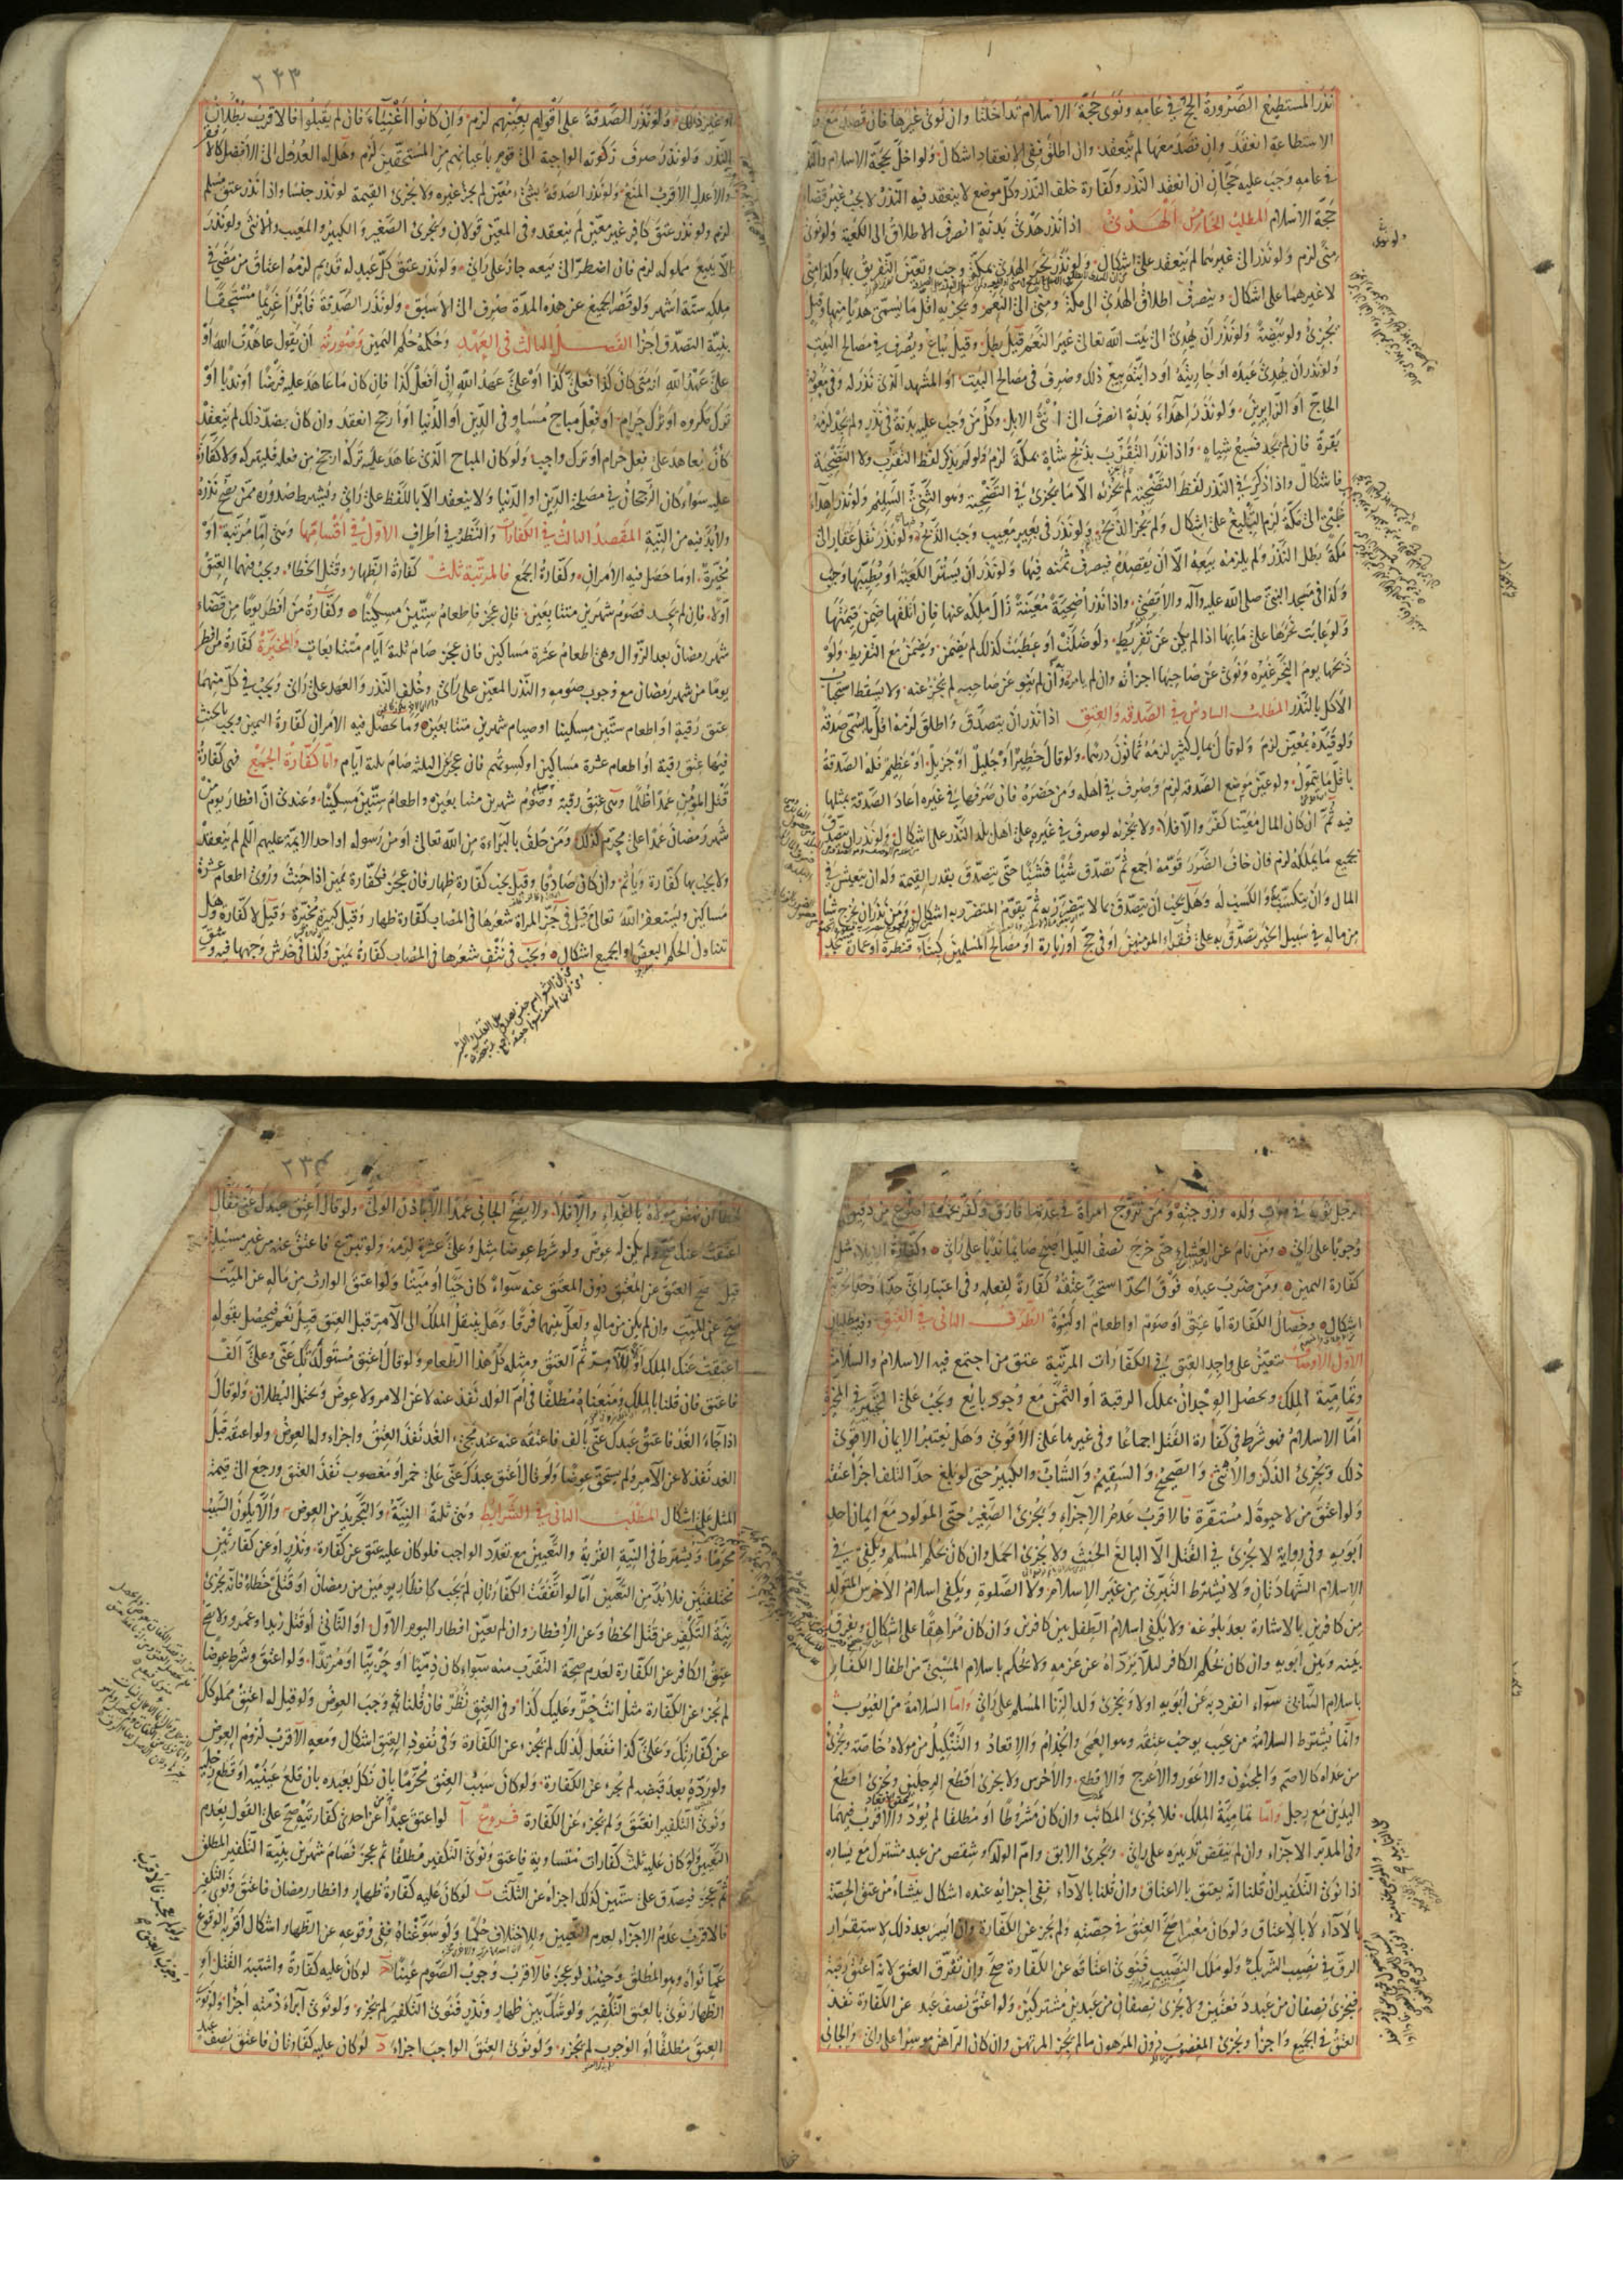 نذر المستطيع الصرورة الحج في عامه ونوى حجة الاسلام تداخلتا وان نوى غيرها فان قصد مع فقد
الاستطاعة انعقد وان قصد معها لم ينعقد وان اطلق ففي الانعقاد اشكال ولو اخل بحجة الاسلام والنذر
في عامه وجب عليه حجتان ان انعقد النذر وكفارة خلف النذر وكل موضع لا ينعقد فيه النذر لا يجب غير قضاء
حجة الاسلام المطلب الخامس الهدى اذا نذر هدى بدنة انصرف الاطلاق الى الكعبة ولو نوى
منى لزم ولو نذر الى غيرهما لم ينعقد على اشكال ولو نذر نحر الهدى بمكة وجب وتعين التفريق بها وكذا منى
لا غيرهما على اشكال وينصرف اطلاق الهدى الى مكة ومنى الى النعم ويجزيه اقل ما يسمى هديا منها وقيل
يجزئ ولو بيضة ولو نذر أن يهدى الى بيت الله تعالى غير النعم قيل بطل وقيل يباع ويصرف في مصالح البيت
ولو نذر أن يهدى عبده أو جاريته أو دابته بيع ذلك وصرف في مصالح البيت أو المشهد الذي نذر له وفي معونة
الحاج أو الزايرين ولو نذر اهداء بدنة انصرف الى انثى الابل وكل من وجب عليه بدنة في نذر ولم يجد لزمه
بقرة فان لم يجد فسبع شياه واذا نذر التقرب بذبح شاة بمكة لزم ولو لم يذكر لفظ التقرب ولا التضحية
فاشكال واذا ذكر في النذر لفظ التضحية لم يجزئه الا ما يجزئ في التضحية وهو الثني السليم ولو نذر اهداء
ظبي الى مكة لزم التبليغ على اشكال ولم يجز الذبح ولو نذر في بعير معيب وجب الذبح ولو نذر نقل عقار الى
مكة بطل النذر ولم يلزمه بيعه الا ان يقصده فيصرف ثمنه فيها ولو نذر أن يستر الكعبة أو يطيبها وجب
وكذا في مسجد النبي صلى الله عليه وآله والاقصى واذا نذر أضحية معينة زال ملكه عنها فان أتلفها ضمن قيمتها
ولو عابت نحرها على ما بها اذا لم يكن عن تفريط ولو ضلت أو عطبت كذلك لم يضمن ويضمن مع التفريط ولو
ذبحها يوم النحر غيره ونوى عن صاحبها اجزأته وان لم يامره وان لم ينو عن صاحبه لم يجز عنه ولا يسقط استحباب
الاكل بالنذر المطلب السادس في الصدقة والعتق اذا نذر أن يتصدق واطلق لزمه اقل ما يسمى صدقة
ولو قيده بمعين لزم ولو قال بمال كثير لزمه ثمانون درهما ولو قال خطير أو جليل أو جزيل أو عظيم فله الصدقة
باقل ما يتمول ولو عين موضع الصدقة لزم وصرف في أهله ومن حضره فان صرفها في غيره أعاد الصدقة بمثلها
فيه ثم ان كان المال معينا كفر والا فلا ولا يجزئه لو صرف في غيره على أهل بلد النذر على اشكال ولو نذر ان يتصدق
بجميع ما يملكه لزم فان خاف الضرر قومه أجمع ثم تصدق شيئا فشيئا حتى يتصدق بقدر القيمة وله ان يتعيش في
المال وان يتكسب به والكسب له وهل يجب أن يتصدق بما لا يتضرر به ثم يقوم المتضرر به اشكال ومن نذر ان يخرج شيئا
من ماله في سبيل الخير تصدق به على فقراء المؤمنين أو في حج أو زيارة أو مصالح المسلمين كبناء قنطرة أو عمارة مسجد
٢٣٣
أو غير ذلك ولو نذر الصدقة على أقوام بعينهم لزم وان كانوا أغنياء فان لم يقبلوا فالاقرب بطلان
النذر ولو نذر صرف زكوته الواجبة الى قوم باعيانهم من المستحقين لزم وهل له العدول الى الافضل كالافقر
والاعدل الاقرب المنع ولو نذر الصدقة بشيء معين لم يجز غيره ولا يجزئ القيمة لو نذر جنسا واذا نذر عتق مسلم
لزم ولو نذر عتق كافر غير معين لم ينعقد وفي المعين قولان ويجزئ الصغير والكبير والمعيب والانثى ولو نذر
الا يبيع مملوكه لزم فان اضطر الى بيعه جاز على رأي ولو نذر عتق كل عبد له قديم لزمه اعتاق من مضى في
ملكه ستة أشهر ولو قصر الجميع عن هذه المدة صرف الى الاسبق ولو نذر الصدقة فأبرأ غريما مستحقا
بنية التصدق اجزأ الفصل الثالث في العهد وحكمه حكم اليمين وصورته أن يقول عاهدت الله أو
على عهد الله انه متى كان كذا فعلي كذا أو علي عهد الله ان أفعل كذا فان كان ما عاهد عليه فرضا أو ندبا أو
ترك مكروه أو ترك حرام أو فعل مباح مساو في الدين أو الدنيا أو أرجح انعقد وان كان بضد ذلك لم ينعقد
كأن يعاهد على فعل حرام أو ترك واجب ولو كان المباح الذي عاهد عليه تركه ارجح من فعله فليتركه ولا كفارة
عليه سواء كان الرجحان في مصلحة الدين أو الدنيا ولا ينعقد الا باللفظ على رأي ويشترط صدوره ممن يصح نذره
ولا بد فيه من النية المقصد الثالث في الكفارات والنظر في اطراف الاول في أقسامها وهى إما مرتبة أو
مخيرة أو ما حصل فيه الامران وكفارة الجمع فالمرتبة ثلث كفارة الظهار وقتل الخطاء ويجب فيهما العتق
أولا فان لم يجد فصوم شهرين متتابعين فإن عجز فاطعام ستين مسكينا وكفارة من افطر يوما من قضاء
شهر رمضان بعد الزوال وهى إطعام عشرة مساكين فان عجز صام ثلثة أيام متتابعات والمخيرة كفارة من افطر
يوما من شهر رمضان مع وجوب صومه والنذر المعين على رأي وخلف النذر والعهد على رأي ويجب في كل منهما
عتق رقبة أو اطعام ستين مسكينا او صيام شهرين متتابعين وما حصل فيه الامران كفارة اليمين ويجب بالحنث
فيها عتق رقبة أو اطعام عشرة مساكين او كسوتهم فان عجز عن الثلثة صام ثلثة أيام واما كفارة الجمع فهى كفارة
قتل المؤمن عمدا ظلما وهى عتق رقبة وصوم شهرين متتابعين واطعام ستين مسكينا وعندي ان افطار يوم من
شهر رمضان عمدا على محرم كذلك ومن حلف بالبراءة من الله تعالى أو من رسوله او احد الائمة عليهم السلم لم ينعقد
ولا يجب بها كفارة ويأثم وان كان صادقا وقيل يجب كفارة ظهار فان عجز فكفارة يمين إذا حنث وروي اطعام عشرة
مساكين ويستغفر الله تعالى وقيل في جز المراة شعرها في المصاب كفارة ظهار وقيل كبيرة مخيرة وقيل لا كفارة وهل
تتناول الحكم البعض او الجميع اشكال ويجب في نتف شعرها في المصاب كفارة يمين وكذا في خدش وجهها فيه وشق
الرجل ثوبه في موت ولده وزوجته ومن تزوج امرأة في عدتها فارق وكفر بخمسة اصوع من دقيق
وجوبا على رأي ومن نام عن العشاء حتى خرج نصف الليل اصبح صايما ندبا على رأي وكفارة الايلاء مثل
كفارة اليمين ومن ضرب عبده فوق الحد استحب عتقه كفارة لفعله وفي اعتبار أي حدا وحد الحرية
اشكال وخصال الكفارة اما عتق أو صوم او اطعام او كسوة الطرف الثاني في العتق وفيه مطلبان
الاول الاوصاف يتعين على واجد العتق في الكفارات المرتبة عتق من اجتمع فيه الاسلام والسلامة
وتمامية الملك ويحصل الوجدان بملك الرقبة أو الثمن مع وجود بايع ويجب على المخير في المخيرة
أما الاسلام فهو شرط في كفارة القتل اجماعا وفي غيرها على الاقوى وهل يعتبر الايمان الاقوى
ذلك ويجزئ الذكر والانثى والصحيح والسقيم والشاب والكبير حتى لو بلغ حد التلف اجزأ عتقه
ولو اعتق من لا حيوة له مستقرة فالاقرب عدم الاجزاء ويجزئ الصغير حتى المولود مع ايمان احد
أبويه وفي رواية لا يجزئ في القتل الا البالغ الحنث ولا يجزئ الحمل وان كان بحكم المسلم ويكفي في
الاسلام الشهادتان ولا يشترط التبري من غير الاسلام ولا الصلوة ويكفي اسلام الاخرس المتولد
من كافرين بالاشارة بعد بلوغه ولا يكفي اسلام الطفل بين كافرين وان كان مراهقا على اشكال ويفرق
بينه وبين أبويه وان كان بحكم الكافر لئلا يرداه عن عزمه ولا يحكم باسلام المسبي من اطفال الكفار
باسلام السابي سواء انفرد به عن أبويه اولا ويجزئ ولد الزنا المسلم على رأي واما السلامة من العيوب
وانما يشترط السلامة من عيب يوجب عتقه وهو العمى والجذام والاقعاد والتنكيل من مولاه خاصة ويجزئ
من عداه كالاصم والمجنون والاعور والاعرج والاقطع والاخرس ولا يجزئ اقطع الرجلين ويجزئ اقطع
اليدين مع رجل واما تمامية الملك فلا يجزئ المكاتب وان كان مشروطا أو مطلقا لم يؤد والاقرب فيهما
وفي المدبر الاجزاء وان لم ينقض تدبيره على رأي ويجزئ الابق وام الولد وشقص من عبد مشترك مع يساره
اذا نوى التكفير ان قلنا انه يعتق بالاعتاق وان قلنا بالاداء ففي اجزائه عنده اشكال ينشأ من عتق الحصة
بالاداء لا بالاعتاق ولو كان معسرا صح العتق في حصته ولم يجز عن الكفارة وان ايسر بعد ذلك لاستقرار
الرق في نصيب الشريك ولو ملك النصيب فنوى اعتاقه عن الكفارة صح وان تفرق العتق لانه اعتق رقبة
فيجزئ نصفان من عبد دفعتين ولا يجزئ نصفان من عبدين مشتركين ولو اعتق نصف عبد عن الكفارة نفذ
العتق في الجميع واجزأ ويجزئ المغصوب دون المرهون ما لم يجز المرتهن وان كان الراهن موسرا على رأي والجاني
٢٣٤
خطأ ان نهض مولاه بالفداء والا فلا ولا يصح الجاني عمدا الا باذن الولي ولو قال أعتق عبدك عني فقال
اعتقت عنك صح ولم يكن له عوض ولو شرط عوضا مثل وعلي عشرة لزمه ولو تبرع فاعتق عنه من غير مسئلة
قيل صح العتق عن المعتق دون المعتق عنه سواء كان حيا أو ميتا ولو اعتق الوارث من ماله عن الميت
صح عن الميت وان لم يكن من ماله ولعل بينهما فرقا وهل ينتقل الملك الى الآمر قبل العتق قيل نعم فيحصل بقوله
اعتقت عنك الملك للآمر ثم العتق ومثله كل هذا الطعام ولو قال أعتق مستولدتك عني وعلي الف
فاعتق فان قلنا بالملك ومنعناه مطلقا في أم الولد نفذ عنه لا عن الامر ولا عوض ويحتمل البطلان ولو قال
اذا جاء الغد فاعتق عبدك عني بألف فاعتقه عنه عند مجيء الغد نفذ العتق واجزاء وله العوض ولو اعتقه قبل
الغد نفذ لا عن الآمر ولم يستحق عوضا ولو قال أعتق عبدك عني على خمر أو مغصوب نفذ العتق ورجع الى قيمة
المثل على اشكال المطلب الثاني في الشرايط وهى ثلثة النية والتجريد من العوض والا يكون السبب
محرما ويشترط في النية القربة والتعيين مع تعدد الواجب فلو كان عليه عتق عن كفارة ونذر أو عن كفارتين
مختلفتين فلا بد من التعيين أما لو اتفقت الكفارتان لم يجب كافطار يومين من رمضان أو قتلى خطاء فانه يجزئ
نية التكفير عن قتل الخطأ وعن الافطار وان لم يعين افطار اليوم الاول او الثاني أو قتل زيد او عمرو ولا يصح
عتق الكافر عن الكفارة لعدم صحة التقرب منه سواء كان ذميا أو حربيا أو مرتدا ولو اعتق وشرط عوضا
لم يجز عن الكفارة مثل انت حر وعليك كذا وفي العتق نظر فان قلنا به وجب العوض ولو قيل له اعتق مملوكك
عن كفارتك وعلي كذا ففعل كذلك لم يجز عن الكفارة وفي نفوذ العتق اشكال ومعه الاقرب لزوم العوض
ولو رده بعد قبضه لم يجز عن الكفارة ولو كان سبب العتق محرما بان نكل بعبده بان قلع عينيه أو قطع رجليه
ونوى التكفير انعتق ولم يجز عن الكفارة فروع آ لو اعتق عبدا عن احدى كفارتيه صح على القول بعدم
التعيين ولو كان عليه ثلث كفارات متساوية فاعتق ونوى التكفير مطلقا ثم عجز فصام شهرين بنية التكفير المطلق
ثم عجز فتصدق على ستين كذلك اجزاه عن الثلث ب لو كان عليه كفارة ظهار وافطار رمضان فاعتق ونوى التكفير
فالاقرب عدم الاجزاء لعدم التعيين وللاختلاف حكما ولو سوغناه ففي وقوعه عن الظهار اشكال اقربه الوقوع
عما نواه وهو المطلق وحينئذ لو عجز فالاقرب وجوب الصوم عينا ج لو كان عليه كفارة واشتبه القتل أو
الظهار نوى بالعتق التكفير ولو شك بين ظهار ونذر فنوى التكفير لم يجزء ولو نوى ابراء ذمته أجزأ ولو نوى
العتق مطلقا أو الوجوب لم يجزء ولو نوى العتق الواجب اجزاء د لو كان عليه كفارتان فاعتق نصف عبد